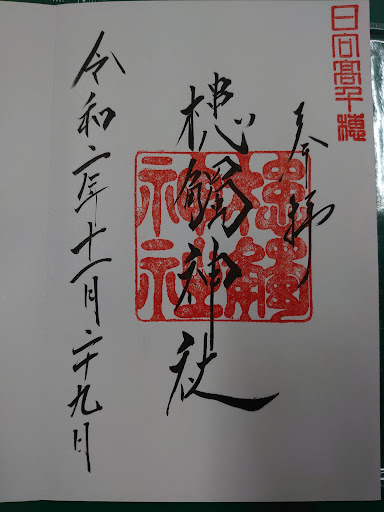 日向髙千穂
奉拝
槵觸神社
槵觸
神社
令和二年十一月二十九日